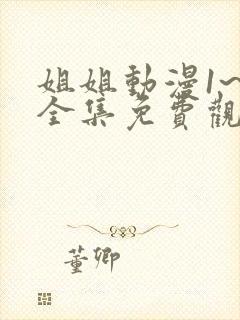 姐姐動漫1~
全集免費觀
董卿